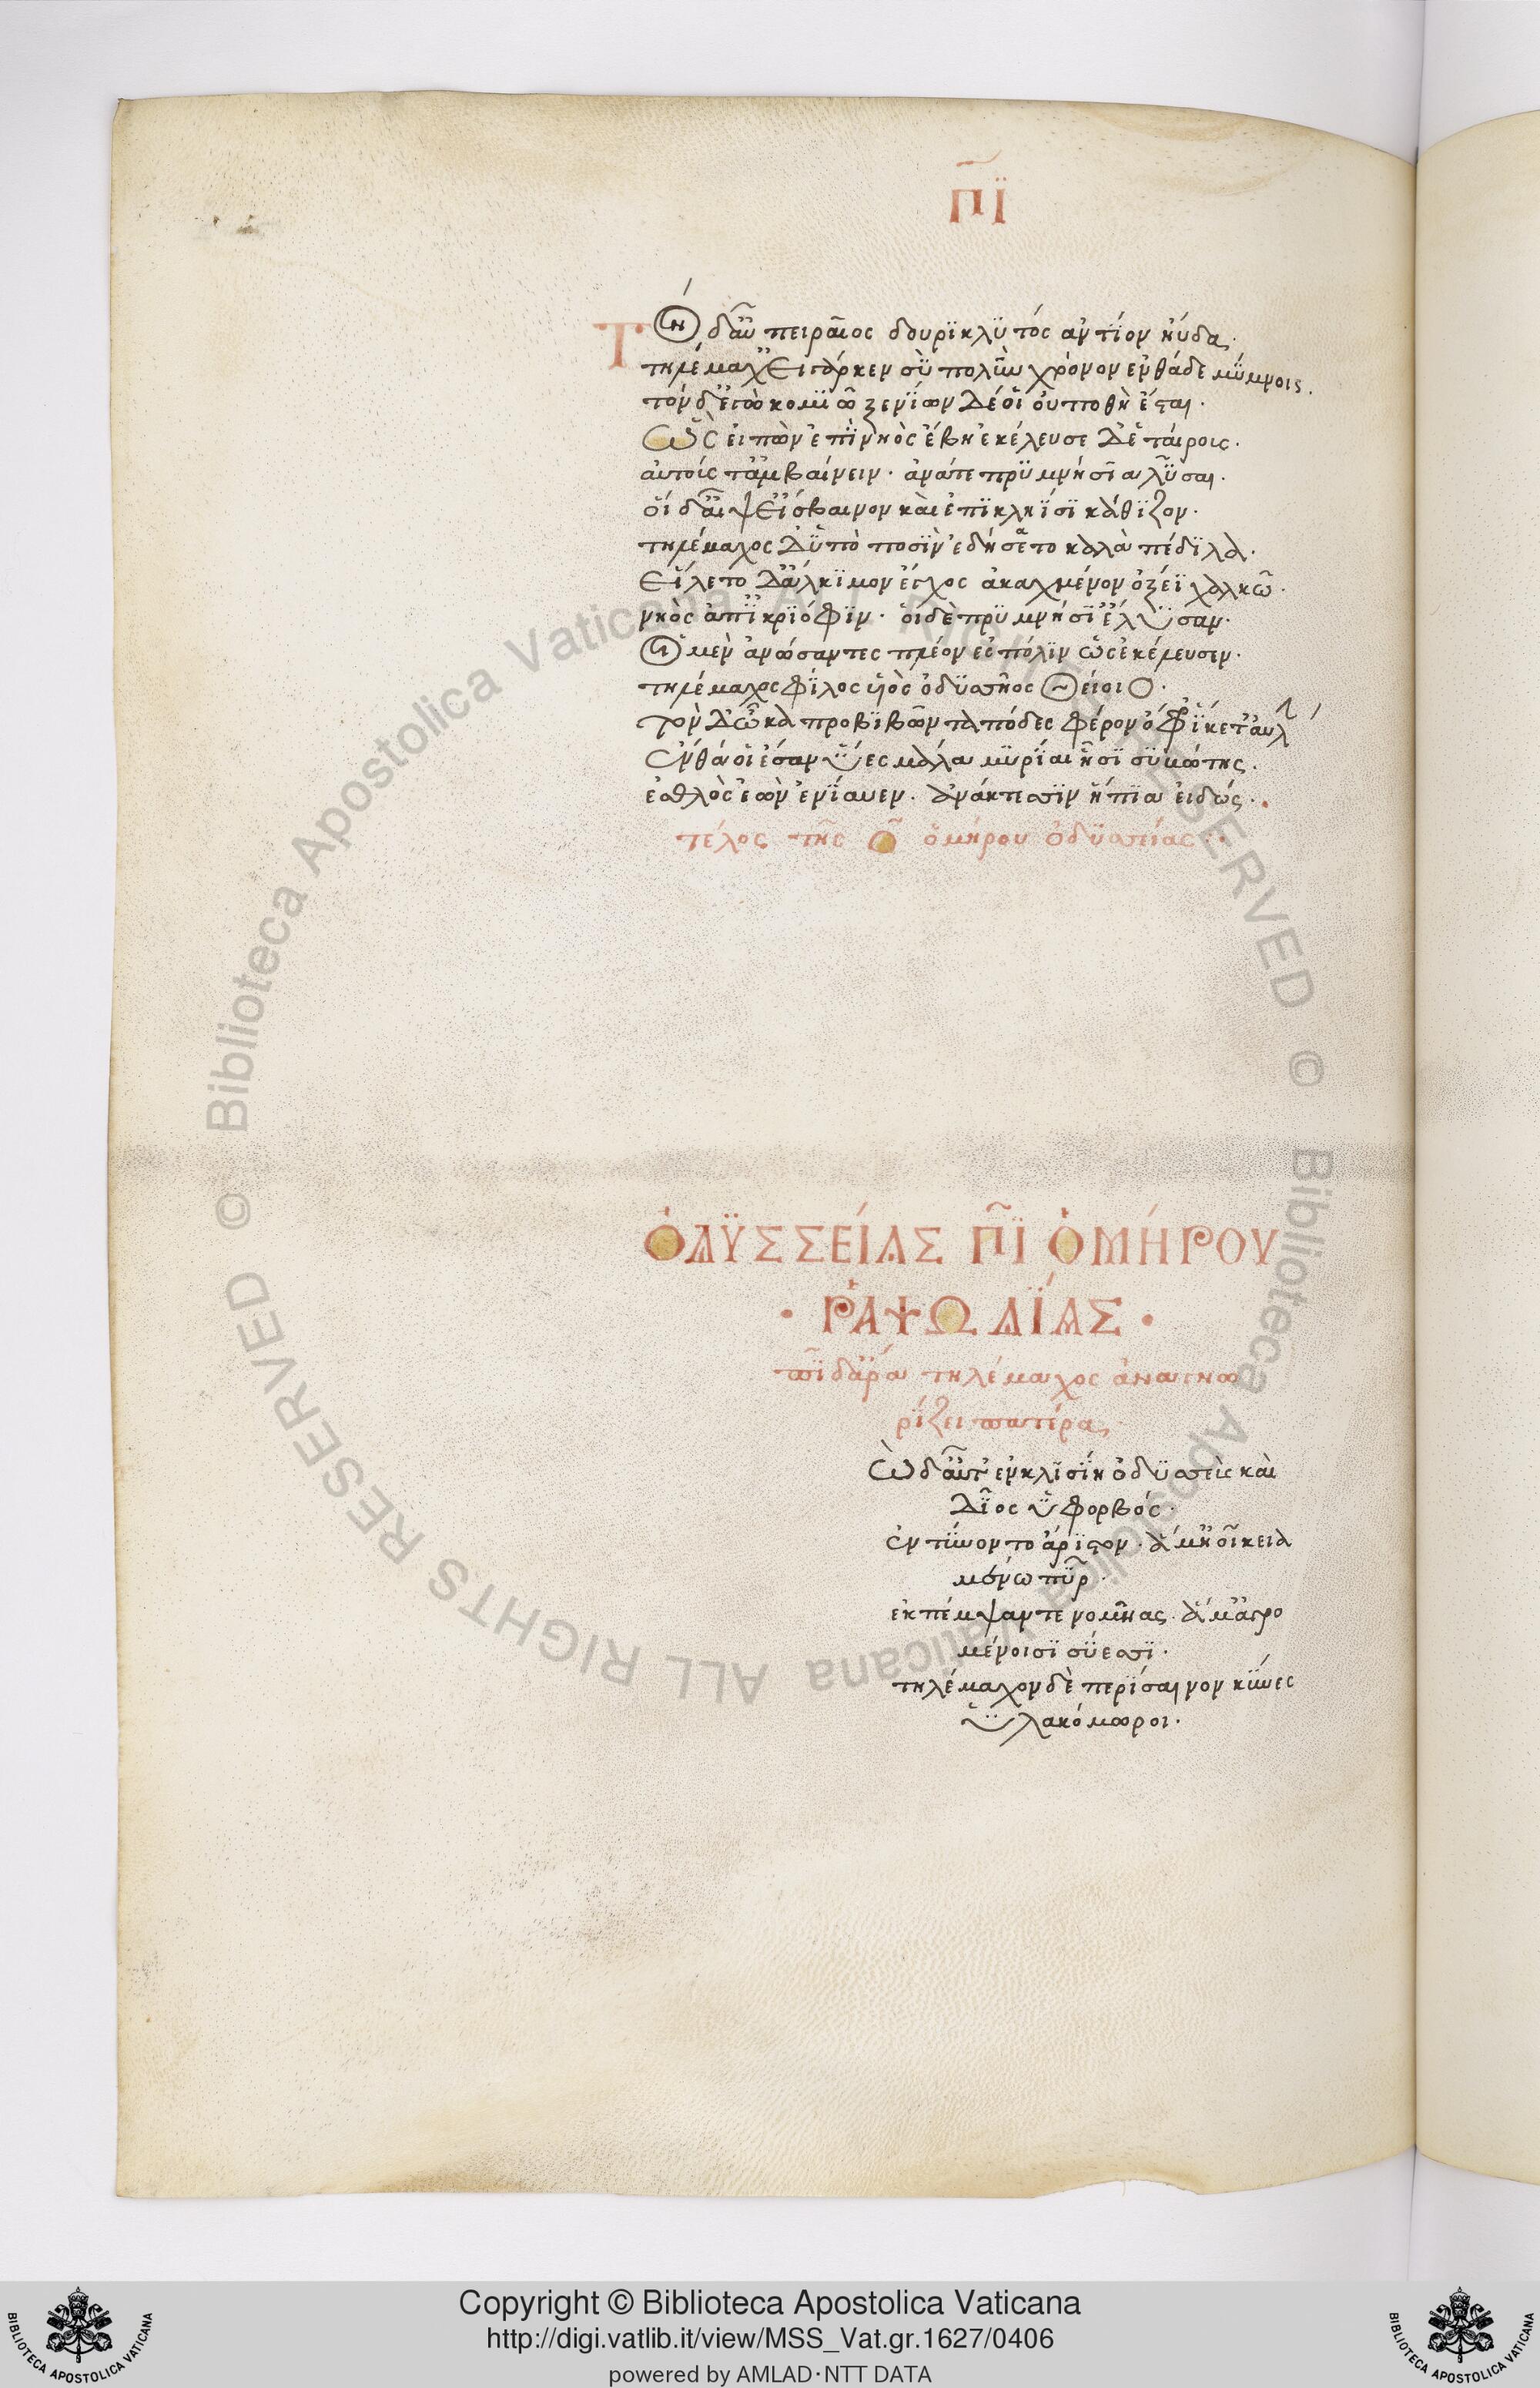 π̃ϊ
Τὸν δ᾽ αὖ πείραιος δουρϊκλϋτὸς ἀντίον ηύδα.
τηλέμαχ᾽ ει γάρ κεν σὺ πολὺν χρόνον ενθάδε μίμνοις.
τόνδε τ᾽ εγὼ κομϊῶ ξενίων δέ οἱ ου ποθὴ έσται.
Ὣς ειπὼν επὶ νηὸς έβη εκέλευσε δ᾽ εταίροις.
αυτούς τ᾽ αμβαίνειν. ανά τε πρυμνήσια λῦσαι.
οἱ δ᾽ αῖψ᾽ είσβαινον καὶ επὶ κληῖσι κάθιζον.
τηλέμαχος δ᾽ ὑπὸ ποσὶν εδήσατο καλὰ πέδιλα.
Είλετο δ᾽ άλκιμον έγχος ακαχμένον οξέϊ χαλκῶ.
νηὸς απ᾽ ικριόφιν. οἱ δὲ πρυμνήσι᾽ έλυσαν.
Οἱ μὲν ανώσαντες πλέον ες πόλιν ὡς εκέλευσεν.
τηλέμαχος φίλος υἱὸς οδυσσῆος θείοιο.
τὸν δ᾽ ῶκα προβιβῶντα πόδες φέρον όφρ᾽ ίκετ᾽ αυλ
Ένθά οἱ έσαν ὕες μάλα μυρίαι ῇσι συβώτης.
εσθλὸς εὼν ενίαυεν. ανάκτεσιν ήπια ειδώς.
τέλος τῆς ο̃ ὁμήρου οδυσσείας
ὈΔΫΣΣΕΊΑΣ Π̃Ϊ ὉΜΉΡΟΥ
· ῬΑΨΩΔΪ́ΑΣ ·
πῖ δ᾽ άρα τηλέμαχος αναγνω
ρίζει πατέρα
Τὼ δ᾽ αῦτ᾽ εν κλισίη οδυσσεὺς καὶ
δῖος ὑφορβός.
εντύνοντο άριστον. άμ᾽ ηοῖ κεια
μένω πῦρ.
εκπέμψαν τε νομῆας. άμ᾽ αγρο
μένοισι σύεσσι.
τηλέμαχον δὲ περίσαινον κύνες
ὑλακόμωροι.
Copyright © Biblioteca Apostolica Vaticana
http://digi.vatlib.it/view/MSS_Vat.gr.1627/0406
powered by AMLAD·NTT DATA
© Biblioteca Apostolica Vaticana ALL RIGHTS RESERVED
© Biblioteca Apostolica Vaticana ALL RIGHTS RESERVED
BIBLIOTECA APOSTOLICA VATICANA
BIBLIOTECA APOSTOLICA VATICANA